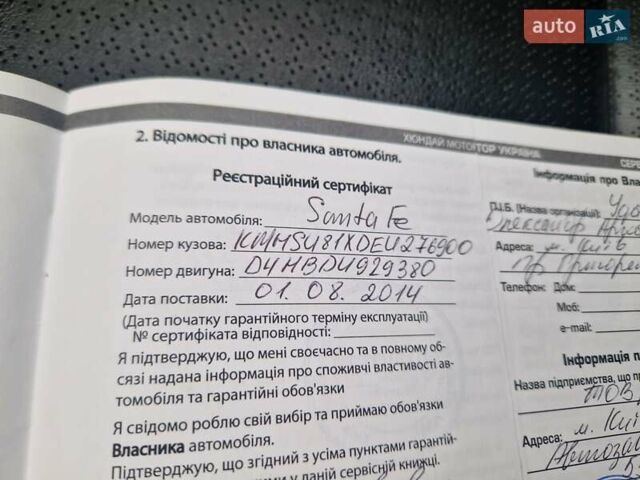 auto RIA
.com
ХЮНДАЙ МОТОР УКРАИНА
СЕРВ
2. Відомості про власника автомобіля.
Реєстраційний сертифікат
Модель автомобіля: Santa Fe
Номер кузова: KMHSU81XDEU276900
Номер двигуна: D4HBDU929380
Дата поставки: 01.08.2014
(Дата початку гарантійного терміну експлуатації)
№ сертифіката відповідності:
Я підтверджую, що мені своєчасно та в повному об-
сязі надана інформація про споживчі властивості ав-
томобіля та гарантійні обов'язки
Я свідомо роблю свій вибір та приймаю обов'язки
Власника автомобіля.
Підтверджую, що згідний з усіма пунктами гарантій-
у даній сервісній книжці.
Інформація про Вла
П.І.Б. (Назва організації):
Олександр
Адреса: м. Київ
пр
Телефон: Дом:
Моб:
e-mail:
Інформація п
Назва підприємства, що пр
ТОВ
Адреса: м. Киї